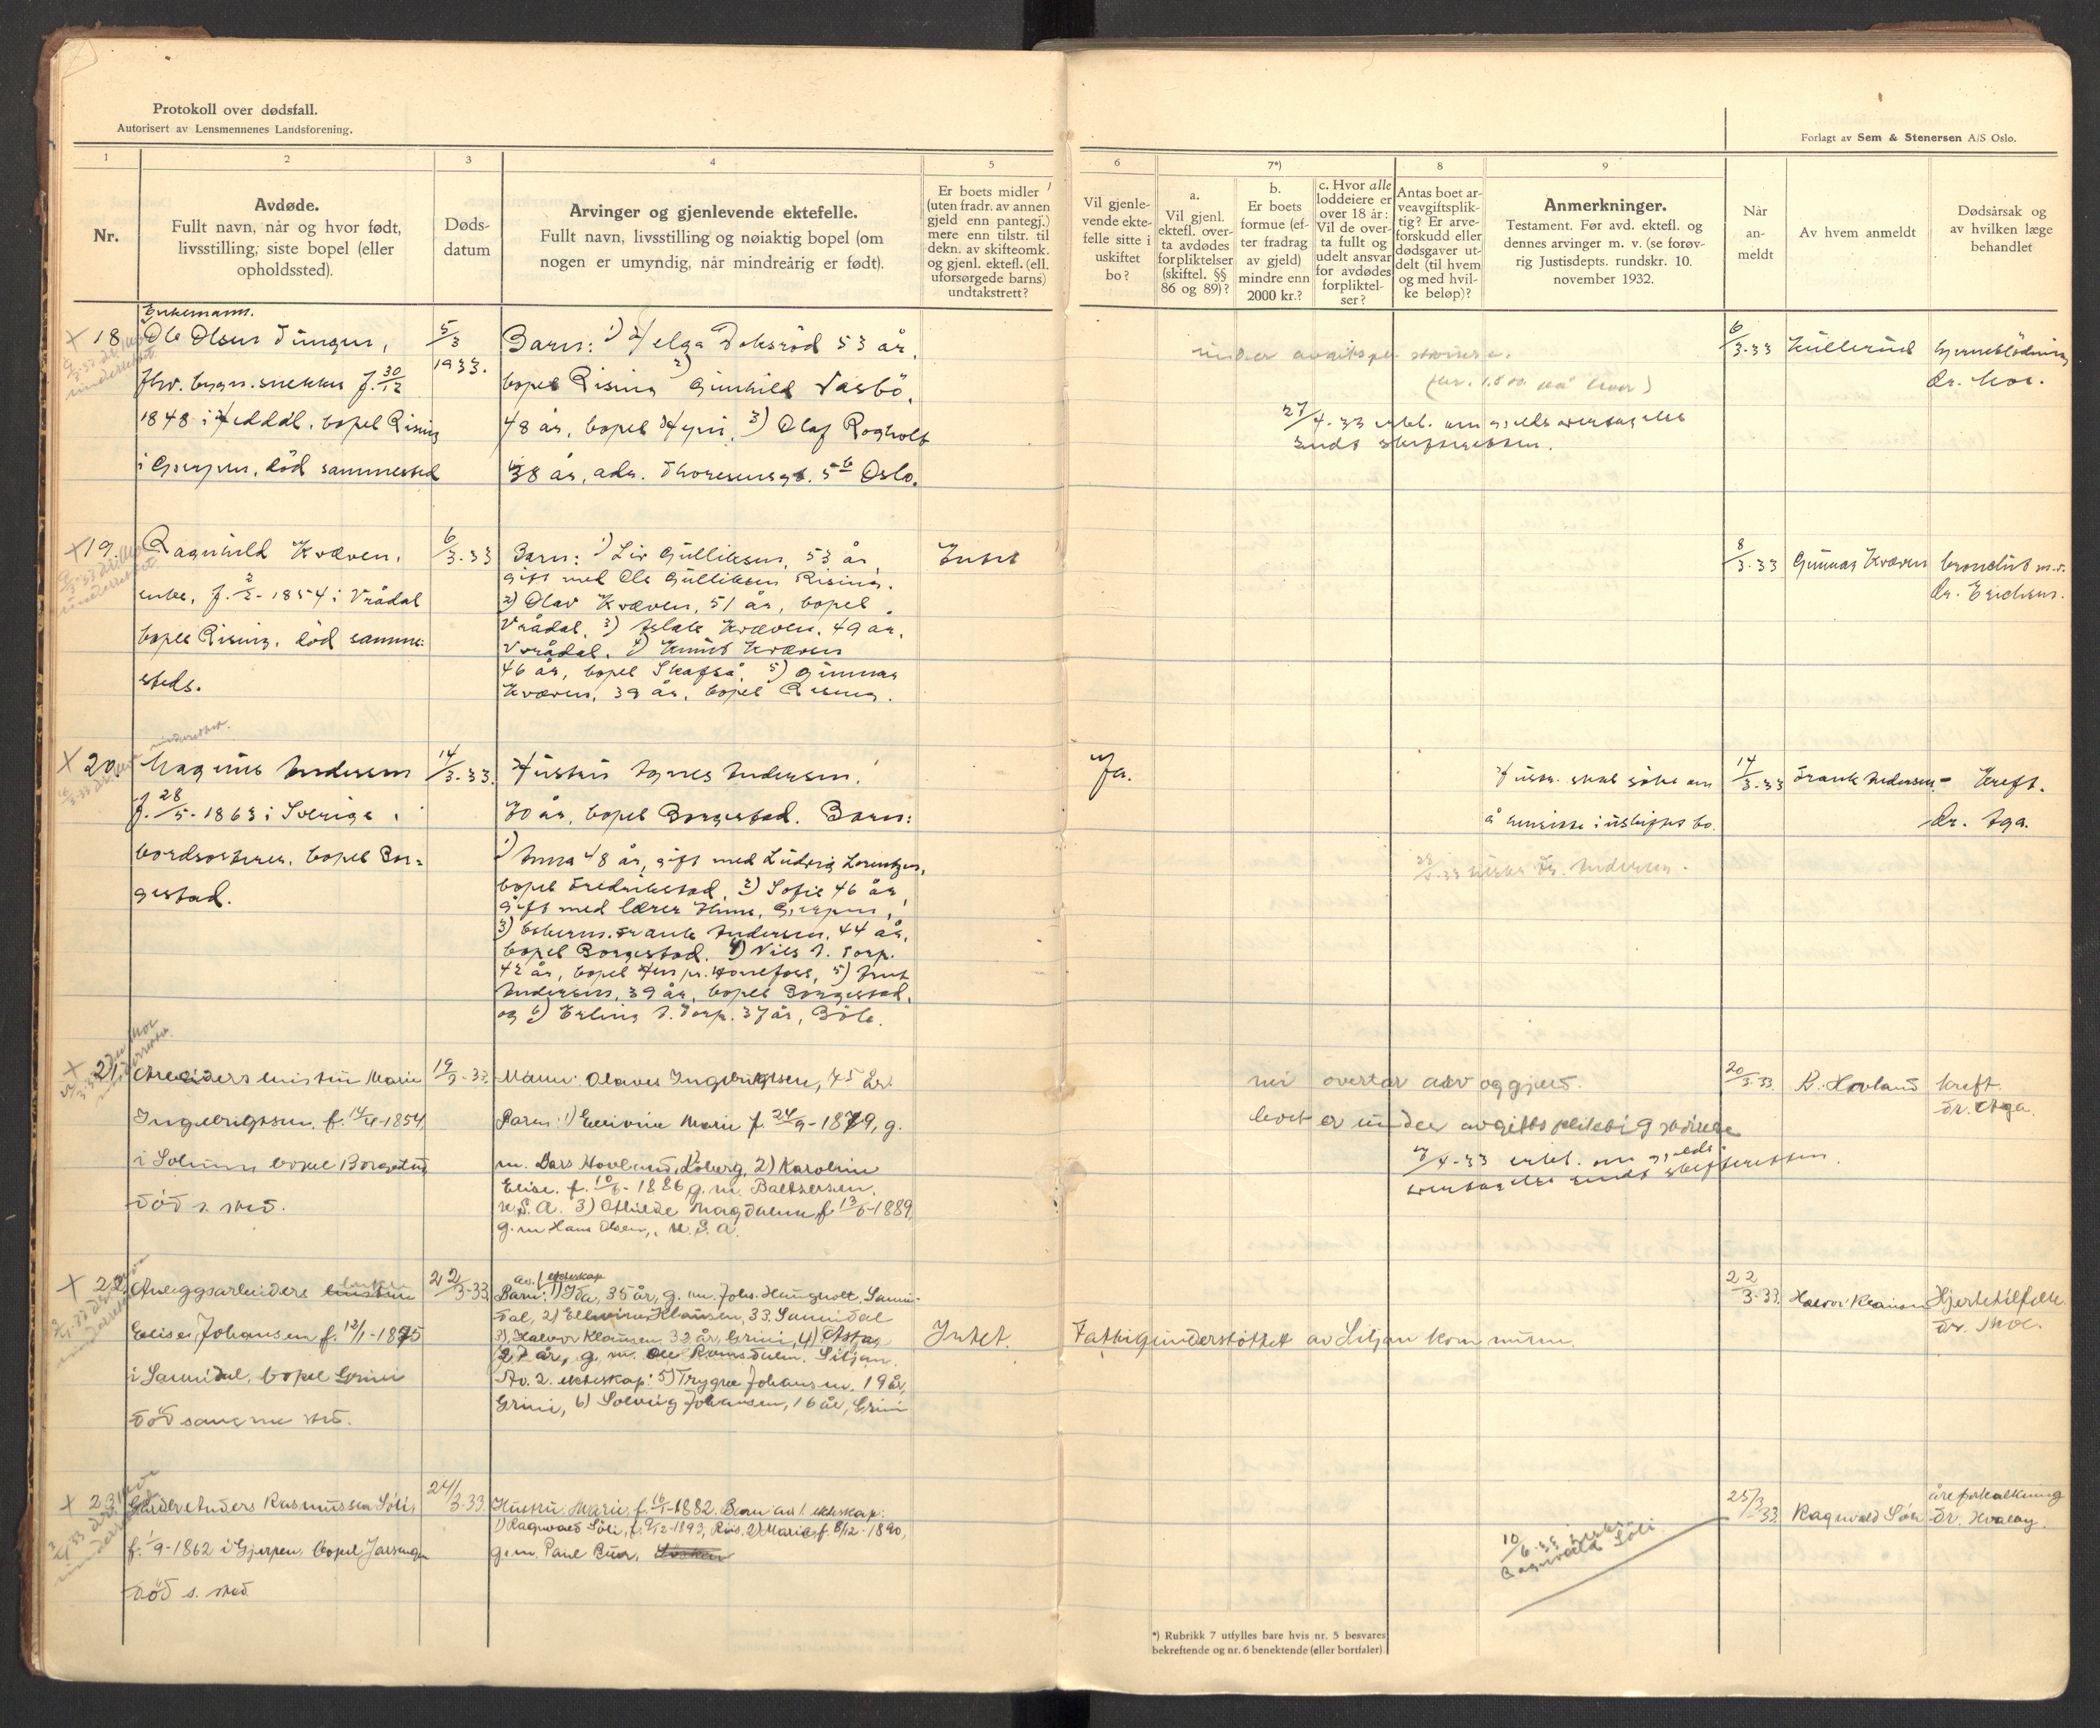 Protokoll over dødsfall.
Autorisert av Lensmennenes Landsforening.
Forlagt av Sem & Stenersen A/S Oslo.
1 2 3 4 5 6 7*) 8 9
Nr.
Avdøde.
Fullt navn, når og hvor født,
livsstilling, siste bopel (eller
opholdssted).
Døds-
datum
Arvinger og gjenlevende ektefelle.
Fullt navn, livsstilling og nøiaktig bopel (om
nogen er umyndig, når mindreårig er født).
Er boets midler
(uten fradr. av annen
gjeld enn pantegj.)
mere enn tilstr. til
dekn. av skifteomk.
og gjenl. ektef. (ell.
uforsørgede barns)
undtakstrett?
Vil gjenle-
vende ekte-
felle sitte i
uskiftet
bo?
a.
Vil gjenl.
ektefl. over-
ta avdødes
forpliktelser
(skiftel. §§
86 og 89)?
b.
Er boets
formue (ef-
ter fradrag
av gjeld)
mindre enn
2000 kr.?
c. Hvor alle
loddeiere er
over 18 år:
Vil de over-
ta fullt og
udelt ansvar
for avdødes
forpliktel-
ser?
Antas boet ar-
veavgiftsplik-
tig? Er arve-
forskudd eller
dødsgaver ut-
delt (til hvem
og med hvil-
ke beløp)?
Anmerkninger.
Testament. Før avd. ektefl. og
dennes arvinger m. v. (se forøv-
rig Justisdepts. rundskr. 10.
november 1932.
Når
an-
meldt
Av hvem anmeldt
Dødsårsak og
av hvilken læge
behandlet
18
Enkemann.
Ole Olsen Tungen,
fhv. bygn.snekker f. 30/12
1848 i Heddal, bopel Rising
i Gjerpen, død sammested
5/3
1933.
Barn: 1) Helga Doksrød 53 år,
bopel Rising 2) Gunhild Vasbö,
48 år, bopel 3) Olaf Rogholt
38 år, adr. Thoresensgt. 5b Oslo.
under avgiftspl. størrelse.
27/4-33 erkl. om gjeldsovertagelse
sendt skifteretten.
6/3-33
Kullerud
hjerneblödning
dr. Moe.
19.
Ragnhild Kvæven,
enke, f. 2/2-1854 i Vrådal
bopel Rising, död samme-
steds.
6/3-33
Barn: 1) Liv Gulliksen, 53 år,
gift med Ole Gulliksen Rising.
2) Olav Kvæven, 51 år, bopel
Vrådal, 3) Aslak Kvæven, 49 år,
Vrådal. 4) Knut Kvæven
46 år, bopel Skafså, 5) Gunnar
Kvæven, 39 år, bopel Rising.
Intet
8/3-33
Gunnar Kværen
bronchit m.v.
dr. Erichsen.
20.
Magnus Andersen
f. 28/5-1863 i Sverige,
bordsorterer, bopel Bor-
gestad.
14/3-33.
Hustru Agnes Andersen,
70 år, bopel Borgestad. Barn:
1) Anna 48 år, gift med Ludvig Lorentzen,
bopel Fredrikstad, 2) Sofie 46 år,
gift med lærer Gjerpen,
3) Frank Andersen, 44 år,
bopel Borgestad. 4) Nils A. Torp.
42 år, bopel Hønefoss, 5)
Andersen, 39 år, bopel Borgestad,
og 6) Erling A. Torp. 37 år, Böle.
Ja.
Hustr. skal söke om
å hensitte i uskiftet bo.
14/3-33
Frank Andersen
Kreft.
dr. Aga.
21.
Arbeiders hustru Marie
Ingebrigtsen, f. 14/4-1854
i Solum bopel Borgestad
död s. sted.
19/3-33.
Mann: Olaves Ingebrigtsen, 75 år.
Barn: 1) Ellevine Marie f. 24/9-1879, g.
m. Lars Hovland, 2) Karoline
Elise. f. 10/6-1886, g. m. Baltsersen,
U.S.A. 3) Othilde Magdalene f. 13/6-1889
g. m Hans Olsen, U.S.A.
overtar arv og gjeld.
boet er under avgiftspliktig störrelse
8/4-33 erkl. om gjelds-
overtagelse sendt skifteretten.
20/3-33.
R. Hovland
kreft.
Dr. Aga.
22.
Anleggsarbeiders enke
Elise Johansen f. 12/1-1875
i Sannidal, bopel Grini
död samme sted.
22/3-33.
av. 1 ekteskap
Barn: 1) Ida, 35 år, g. m. Johs. Haugholt, Sanni-
dal, 2) Ellevine Klausen, 33. Sannidal
3) Halvor Klausen 32 år, Grini, 4) Asta,
27 år, g. m. Ole Siljan.
Av. 2. ekteskap: 5) Trygve Johansen, 19 år,
Grini, 6) Solveig Johansen, 16 år, Grini
Intet.
Fattigunderstöttet av Siljan kommune.
22/3-33.
Halvor Klausen
Hjertetilfelle.
Dr. Moe.
23
Gårdbr. Anders Rasmussen Sóli,
f. 1/9-1862 i Gjerpen, bopel
død s. sted.
24/3-33.
Hustru: Marie f. 16/1-1882. Barn av 1. ekteskap:
1) Ragnvald Sóli, f. 9/12-1893, Ris, 2) Marie f. 8/12-1890,
g. m. Paul Buer,
10/6-33
Ragnvald Sóli
25/3-33.
Ragnvald Sóli
åreforkalkning
Dr. Hvalby.
*) Rubrikk 7 utfylles bare hvis nr. 5 besvares
bekreftende og nr. 6 benektende (eller bortfaler).